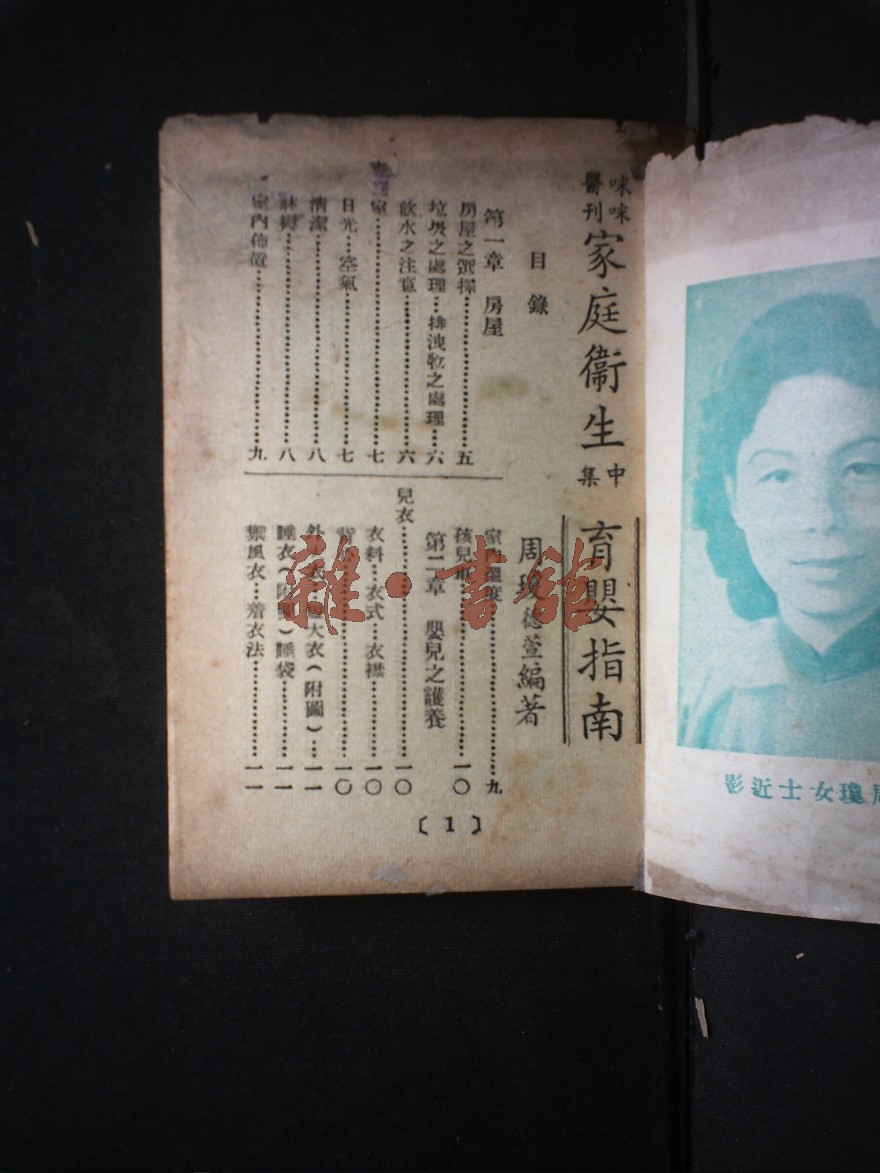 咪咪
醫刊
家庭衞生
中集
育嬰指南
周瓊德萱編著
目錄
第一章 房屋
房屋之選擇…五
垃圾之處理…排洩物之處理…六
飲水之注意…六
室…七
日光…空氣…七
清潔…八
八
室內佈置…九
室內溫度…九
孩兒…一〇
第二章 嬰兒之護養
兒衣…一〇
衣料…衣式…衣襟…一〇
一〇
大衣(附圖)…一一
睡衣(附圖)睡袋…一一
禦風衣…着衣法…一一
〔1〕
周瓊女士近影
雜·書館